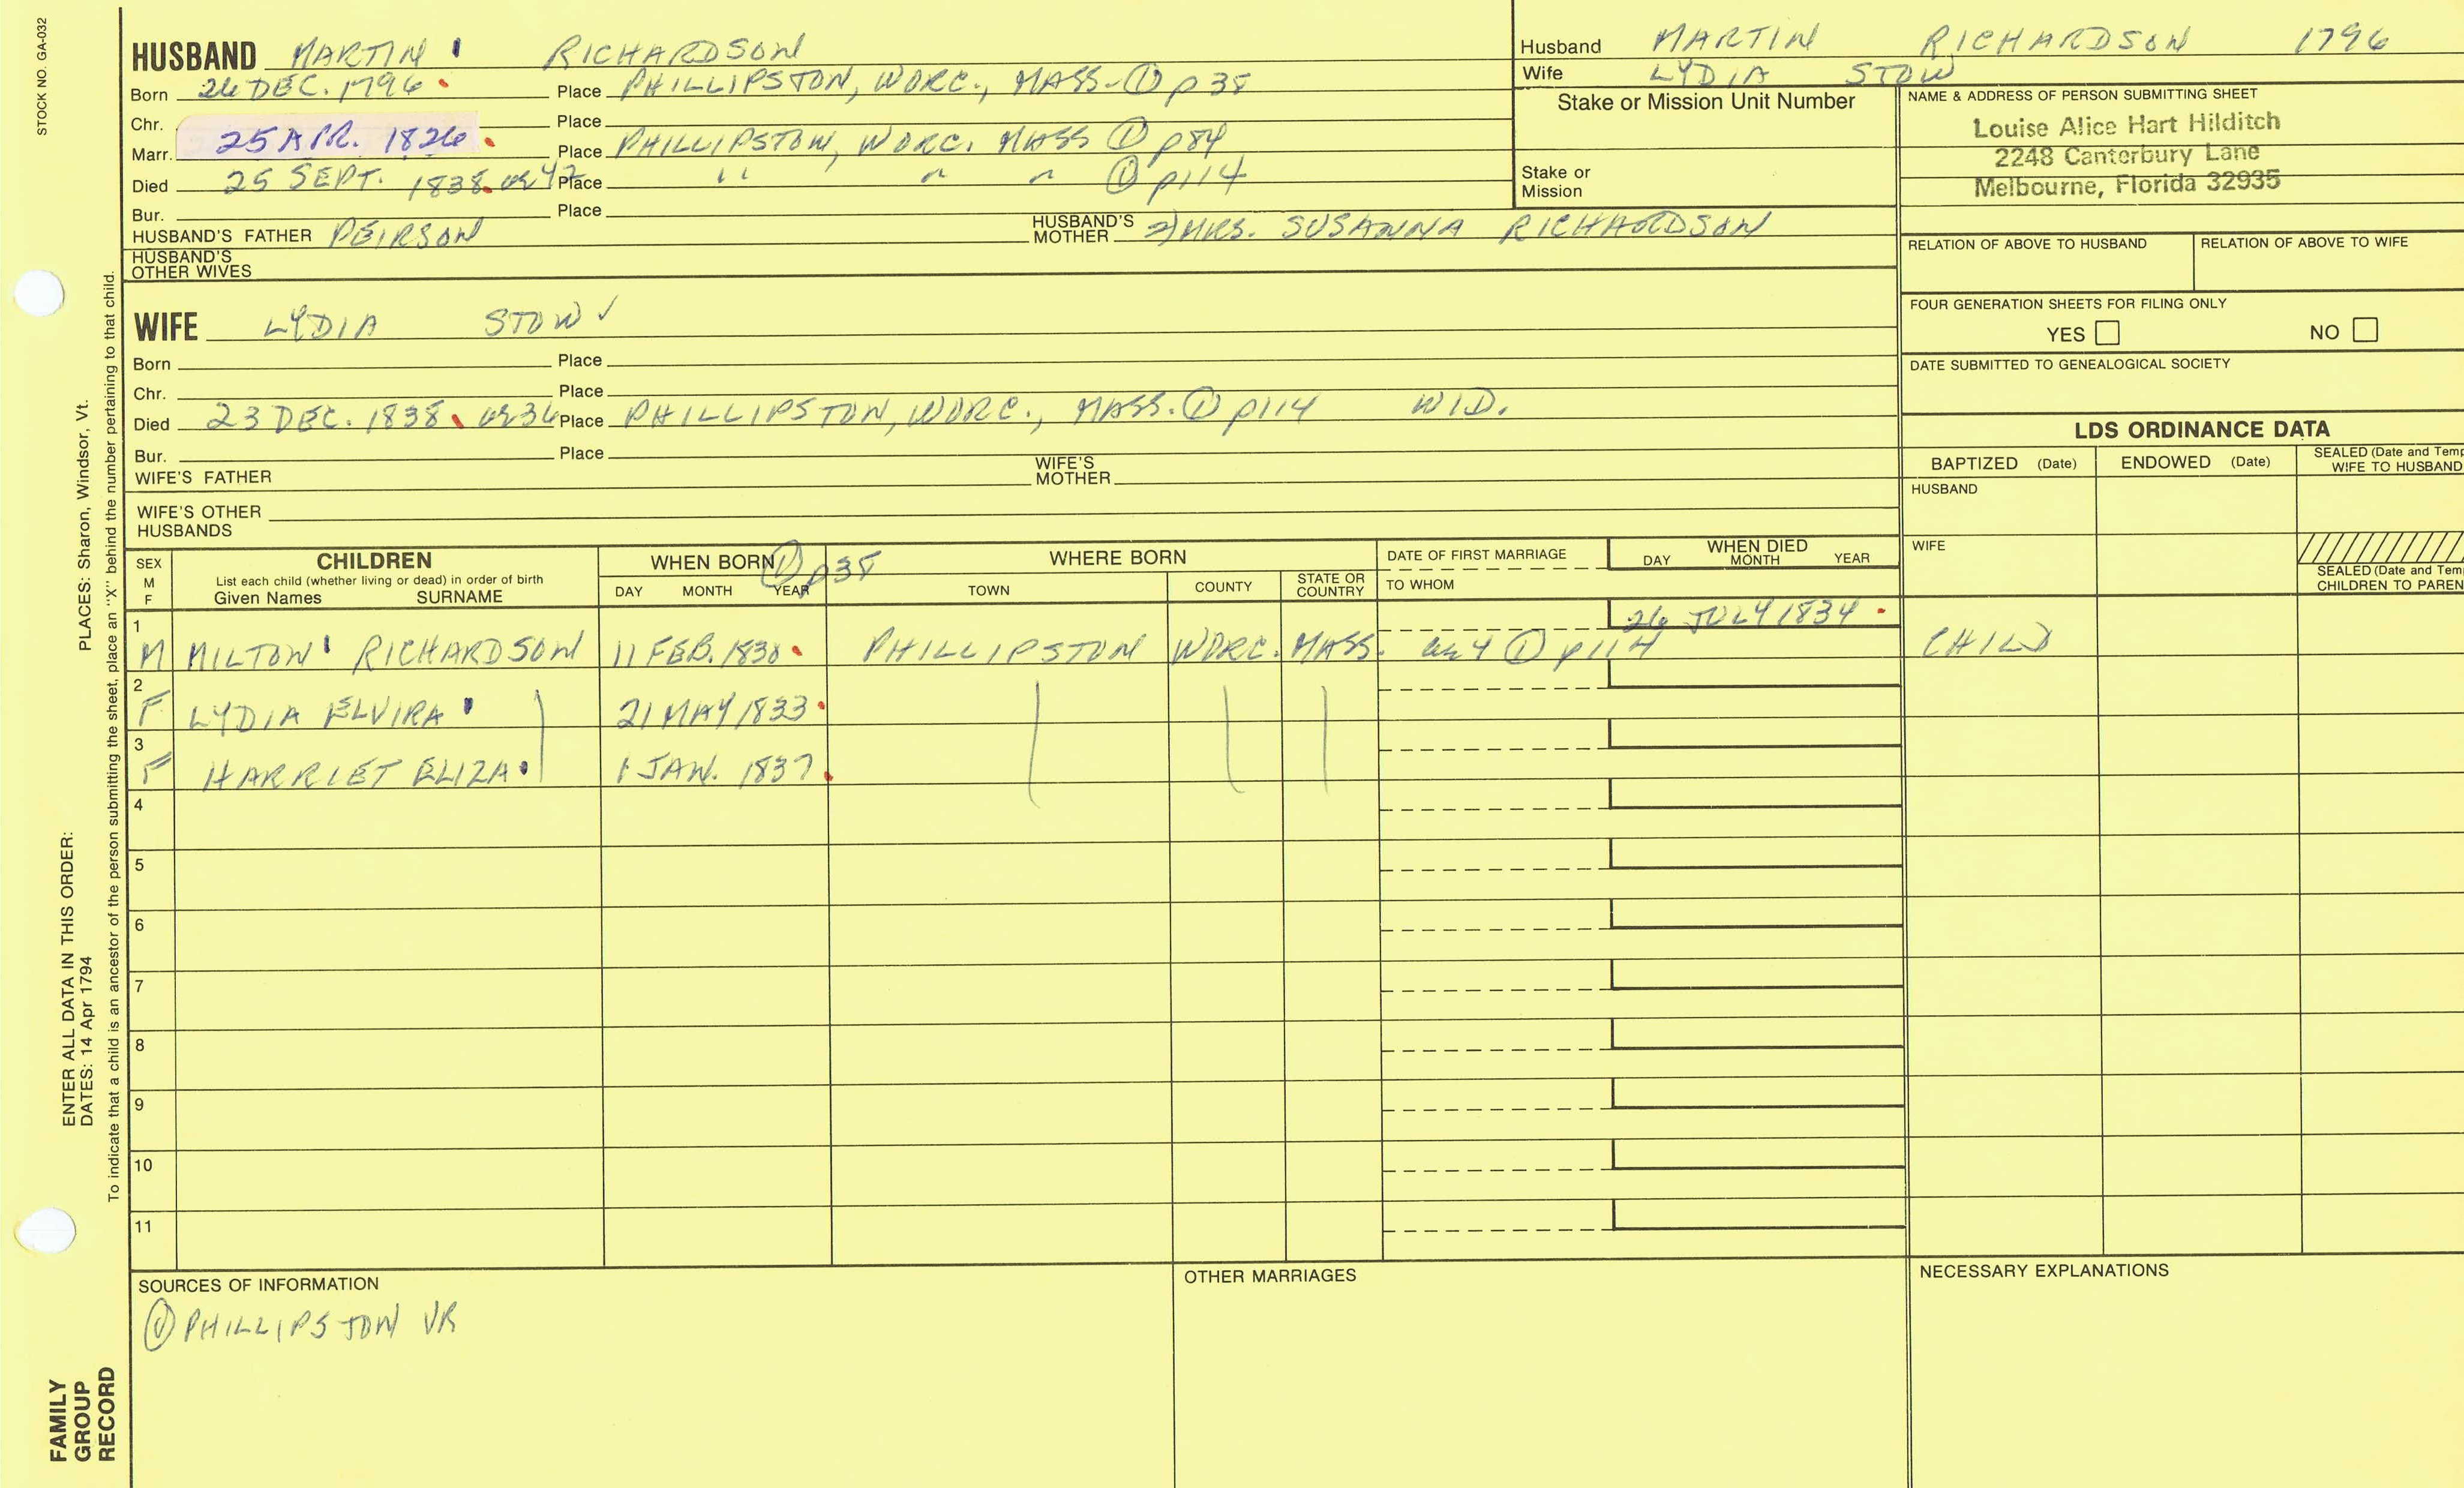 STOCK NO. GA-032
HUSBAND MARTIN RICHARDSON
Born 26 DEC. 1796. Place PHILLIPSTON, WORC., MASS. ① p 38
Chr. Place
Marr. 25 APR. 1826. Place PHILLIPSTON, WORC. MASS ① p84
Died 25 SEPT. 1838. ae 42 Place " " " ① p114
Bur. Place
HUSBAND'S FATHER PEIRSON HUSBAND'S MOTHER 2) MRS. SUSANNA RICHARDSON
HUSBAND'S OTHER WIVES
Husband MARTIN RICHARDSON 1796
Wife LYDIA STOW
Stake or Mission Unit Number
Stake or Mission
NAME & ADDRESS OF PERSON SUBMITTING SHEET
Louise Alice Hart Hilditch
2248 Canterbury Lane
Melbourne, Florida 32935
RELATION OF ABOVE TO HUSBAND RELATION OF ABOVE TO WIFE
FOUR GENERATION SHEETS FOR FILING ONLY
YES NO
DATE SUBMITTED TO GENEALOGICAL SOCIETY
WIFE LYDIA STOW ✓
Born Place
Chr. Place
Died 23 DEC. 1838. ae 36 Place PHILLIPSTON, WORC., MASS. ① p114 WID.
Bur. Place
WIFE'S FATHER WIFE'S MOTHER
WIFE'S OTHER HUSBANDS
LDS ORDINANCE DATA
BAPTIZED (Date) ENDOWED (Date) SEALED (Date and Temp
WIFE TO HUSBAND
HUSBAND
WIFE
SEALED (Date and Temp
CHILDREN TO PAREN
SEX
M
F
CHILDREN
List each child (whether living or dead) in order of birth
Given Names SURNAME
WHEN BORN ① p38
DAY MONTH YEAR
WHERE BORN
TOWN COUNTY STATE OR COUNTRY
DATE OF FIRST MARRIAGE
TO WHOM
WHEN DIED
DAY MONTH YEAR
1 26 JULY 1834.
M MILTON RICHARDSON 11 FEB. 1830. PHILLIPSTON WORC. MASS. ae 4 ① p114 CHILD
2
F LYDIA ELVIRA 21 MAY 1833.
3
F HARRIET ELIZA 1 JAN. 1837.
4
5
6
7
8
9
10
11
SOURCES OF INFORMATION
① PHILLIPSTON VR
OTHER MARRIAGES
NECESSARY EXPLANATIONS
PLACES: Sharon, Windsor, Vt.
To indicate that a child is an ancestor of the person submitting the sheet, place an "X" behind the number pertaining to that child.
ENTER ALL DATA IN THIS ORDER:
DATES: 14 Apr 1794
FAMILY
GROUP
RECORD